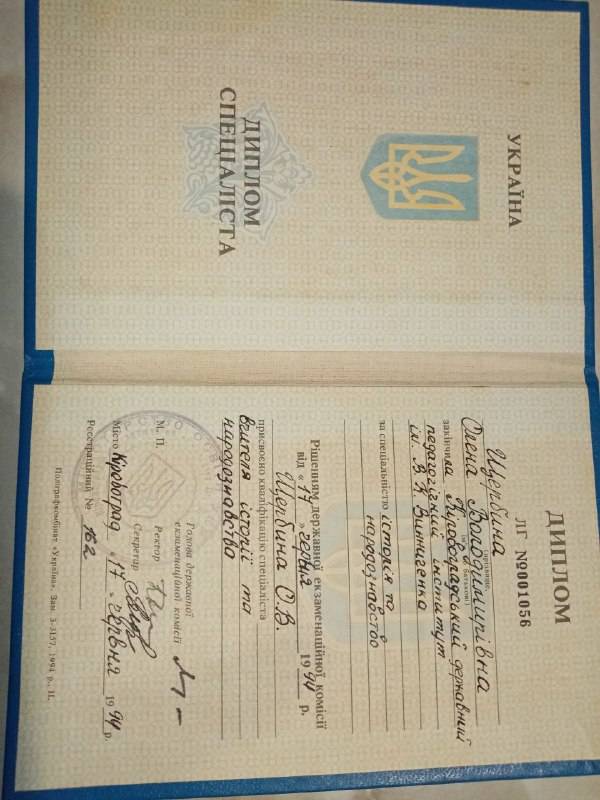 УКРАЇНА
ДИПЛОМ
СПЕЦІАЛІСТА
ДИПЛОМ
ЛГ №001056
Щербина
(прізвище,
Олена Володимирівна
ім'я, по батькові)
закінчила Кіровоградський державний
педагогічний інститут
ім. В. К. Винниченка
за спеціальністю історія та
народознавство
Рішенням державної екзаменаційної комісії
від « 17 » червня 1994 р.
Щербина О.В.
присвоєно кваліфікацію спеціаліста
вчителя історії та
народознавства
Голова державної
екзаменаційної комісії
М. П.
Ректор
Секретар
Місто Кіровоград « 17 » червня 1994 р.
Реєстраційний №
Поліграфкомбінат «Україна». Зам. 3-3157. 1994 р., II.